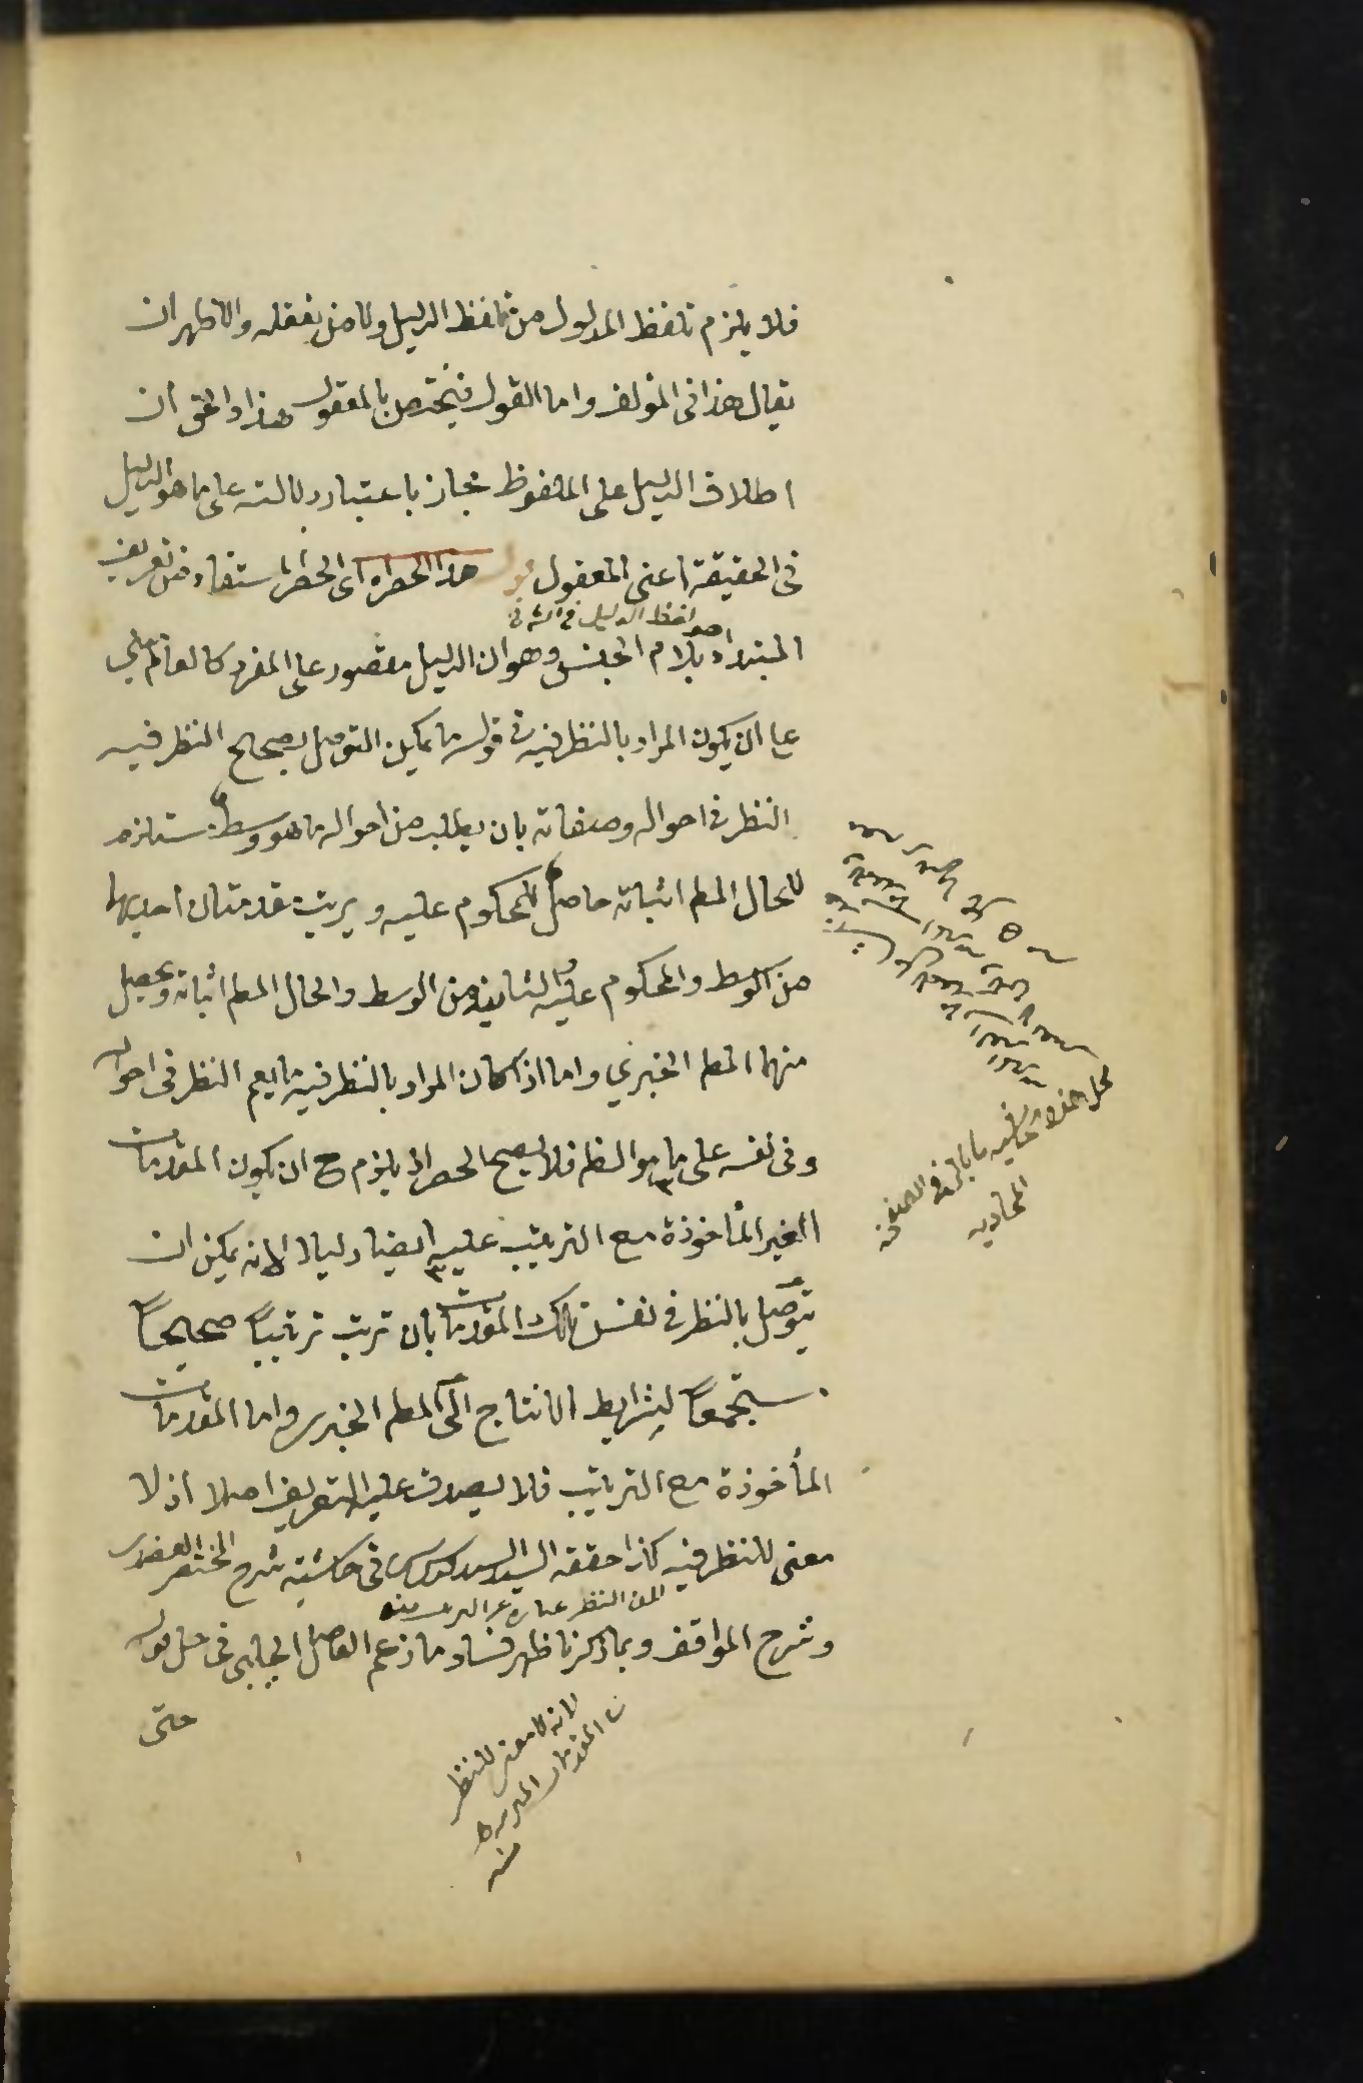 فلا يلزم تلفظ المدلول من تلفظ الدليل ولا من تعقله والاظهر ان
يقال هذا فى المؤلف واما القول فيختص بالمعقول هذا والحق ان
اطلاق الدليل على الملفوظ مجاز باعتبار دلالته على ما هو الدليل
فى الحقيقة اعنى المعقول قوله هذا الحصر اه اى الحصر المستفاد من تعريف
هو لفظ الدليل
المبتداء بلام الجنس وهو ان الدليل مقصور على المفرد كالعالم مبنى
على ان يكون المراد بالنظر فيه فى قوله ما يمكن التوصل بصحيح النظر فيه
النظر فى احواله وصفاته بان يطلب من احواله ما هو وسط مستلزم
للحال المط اثباته حاصل للمحكوم عليه ويرتب مقدمتان احديهما
من الوسط والمحكوم عليه والثانية من الوسط والحال المط اثباته ويحصل
منهما المط الخبرى واما اذا كان المراد بالنظر فيه ما يعم النظر فى احواله
وفى نفسه على ما هو الظ فلا يصح الحصر اذ يلزم ح ان يكون المقدمات
الغير المأخوذة مع الترتيب عليه ايضا دليلا لانه يمكن ان
يتوصل بالنظر فى نفس تلك المقدمات بان ترتب ترتيباً صحيحاً
مستجمعاً لشرايط الانتاج الى المط الخبرى واما المقدمات
المأخوذة مع الترتيب فلا يصدق عليه التعريف اصلا اذ لا
معنى للنظر فيه كذا حققه السيد السند قدس سره فى حاشية شرح المختصر العضدى
لان النظر عبارة عن الترتيب منه
وشرح المواقف وبما ذكرنا ظهر فساد ما زعم الفاضل الچلبى فى حل قوله
حتى
لانه لا معنى للنظر
فى المقدمات المرتبة
منه
محل هذه الحاشية ما بالمر فى الصفحة
المحاذيه